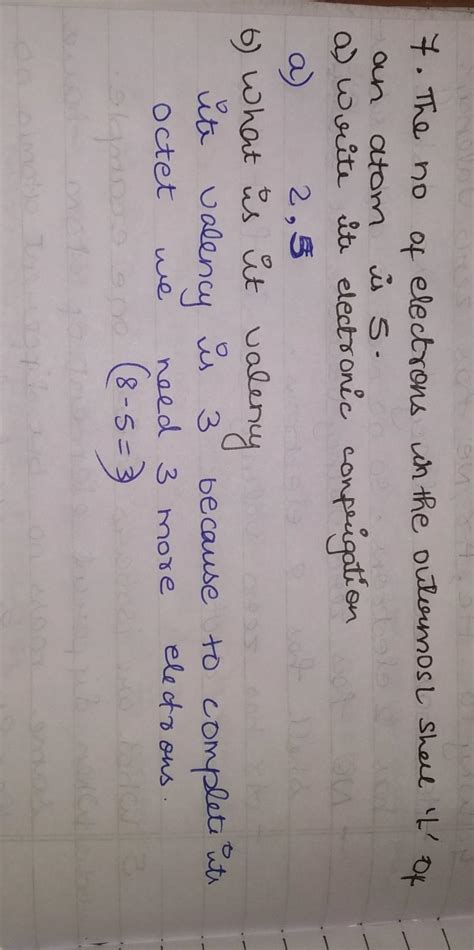 7. The no of electrons in the outermost shell 'L' of
an atom is 5.
a) Write its electronic conpigation
a) 2, 5
b) What is it valency
its valency is 3 because to complete its
octet we need 3 more electrons.
(8-5=3)